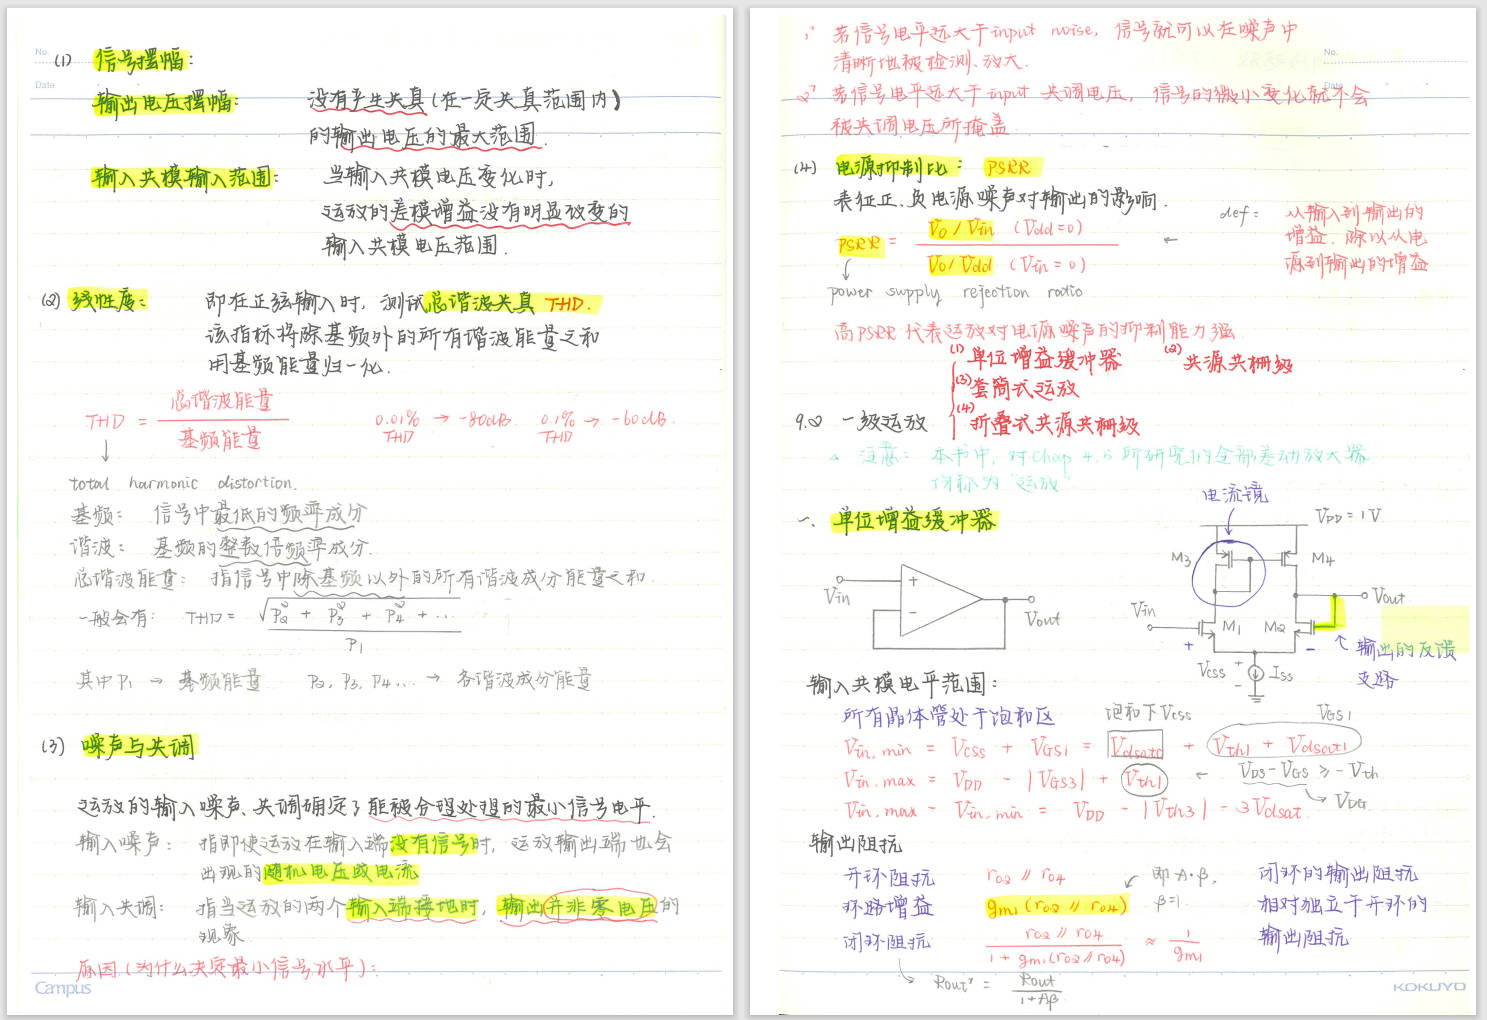 No.
Date
(1) 信号摆幅:
输出电压摆幅: 没有产生失真(在一定失真范围内)
的输出电压的最大范围.
输入共模输入范围: 当输入共模电压变化时,
运放的差模增益没有明显改变的
输入共模电压范围.
(2) 线性度: 即在正弦输入时, 测试总谐波失真 THD.
该指标将除基频外的所有谐波能量之和
用基频能量归一化.
THD = 总谐波能量 / 基频能量 0.01% THD → -80dB. 0.1% THD → -60dB.
total harmonic distortion.
基频: 信号中最低的频率成分
谐波: 基频的整数倍频率成分.
总谐波能量: 指信号中除基频以外的所有谐波成分能量之和.
一般会有: THD = √(P₂² + P₃² + P₄² + ...) / P₁
其中 P₁ → 基频能量 P₂, P₃, P₄... → 各谐波成分能量
(3) 噪声与失调
运放的输入噪声、失调确定了能被合理处理的最小信号电平.
输入噪声: 指即使运放在输入端没有信号时, 运放输出端也会
出现的随机电压或电流
输入失调: 指当运放的两个输入端接地时, 输出并非零电压的
现象
原因(为什么决定最小信号水平):
Campus
No.
Date
1° 若信号电平远大于input noise, 信号就可以在噪声中
清晰地被检测、放大.
2° 若信号电平远大于input 失调电压, 信号的微小变化就不会
被失调电压所掩盖
(4) 电源抑制比: PSRR
表征正、负电源噪声对输出的影响.
PSRR = Vo/Vin (Vdd=0) / Vo/Vdd (Vin=0) ← def: 从输入到输出的
增益, 除以从电
源到输出的增益
power supply rejection ratio
高PSRR代表运放对电源噪声的抑制能力强
9.2 一级运放
(1) 单位增益缓冲器 (2) 共源共栅级
(3) 套筒式运放
(4) 折叠式共源共栅级
注意: 本书中, 对Chap 4.5 所研究的全部差动放大器
仍称为"运放"
一、单位增益缓冲器
Vin
+
-
Vout
电流镜
VDD=1V
M3
M4
Vout
Vin
M1
M2
+
-
Vcss
+
-
Iss
输出的反馈
支路
输入共模电平范围:
所有晶体管处于饱和区 饱和下Vcss VGS1
Vin,min = Vcss + VGS1 = Vdsatc + Vth1 + Vdsat1
Vin,max = VDD - |VGS3| + Vth1 ← VDS-VGS ≥ -Vth
VDG
Vin,max - Vin,min = VDD - |Vth3| - 3Vdsat
输出阻抗
开环阻抗 ro2 // ro4
环路增益 gm1(ro2 // ro4) 即A·β, β=1
闭环阻抗 ro2 // ro4 / 1 + gm1(ro2 // ro4) ≈ 1/gm1
闭环的输出阻抗
相对独立于开环的
输出阻抗
Rout' = Rout / 1+Aβ
KOKUYO